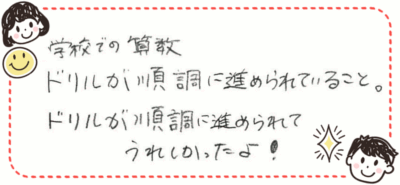 学校での算数
ドリルが順調に進められていること。
ドリルが順調に進められて
うれしかったよ!